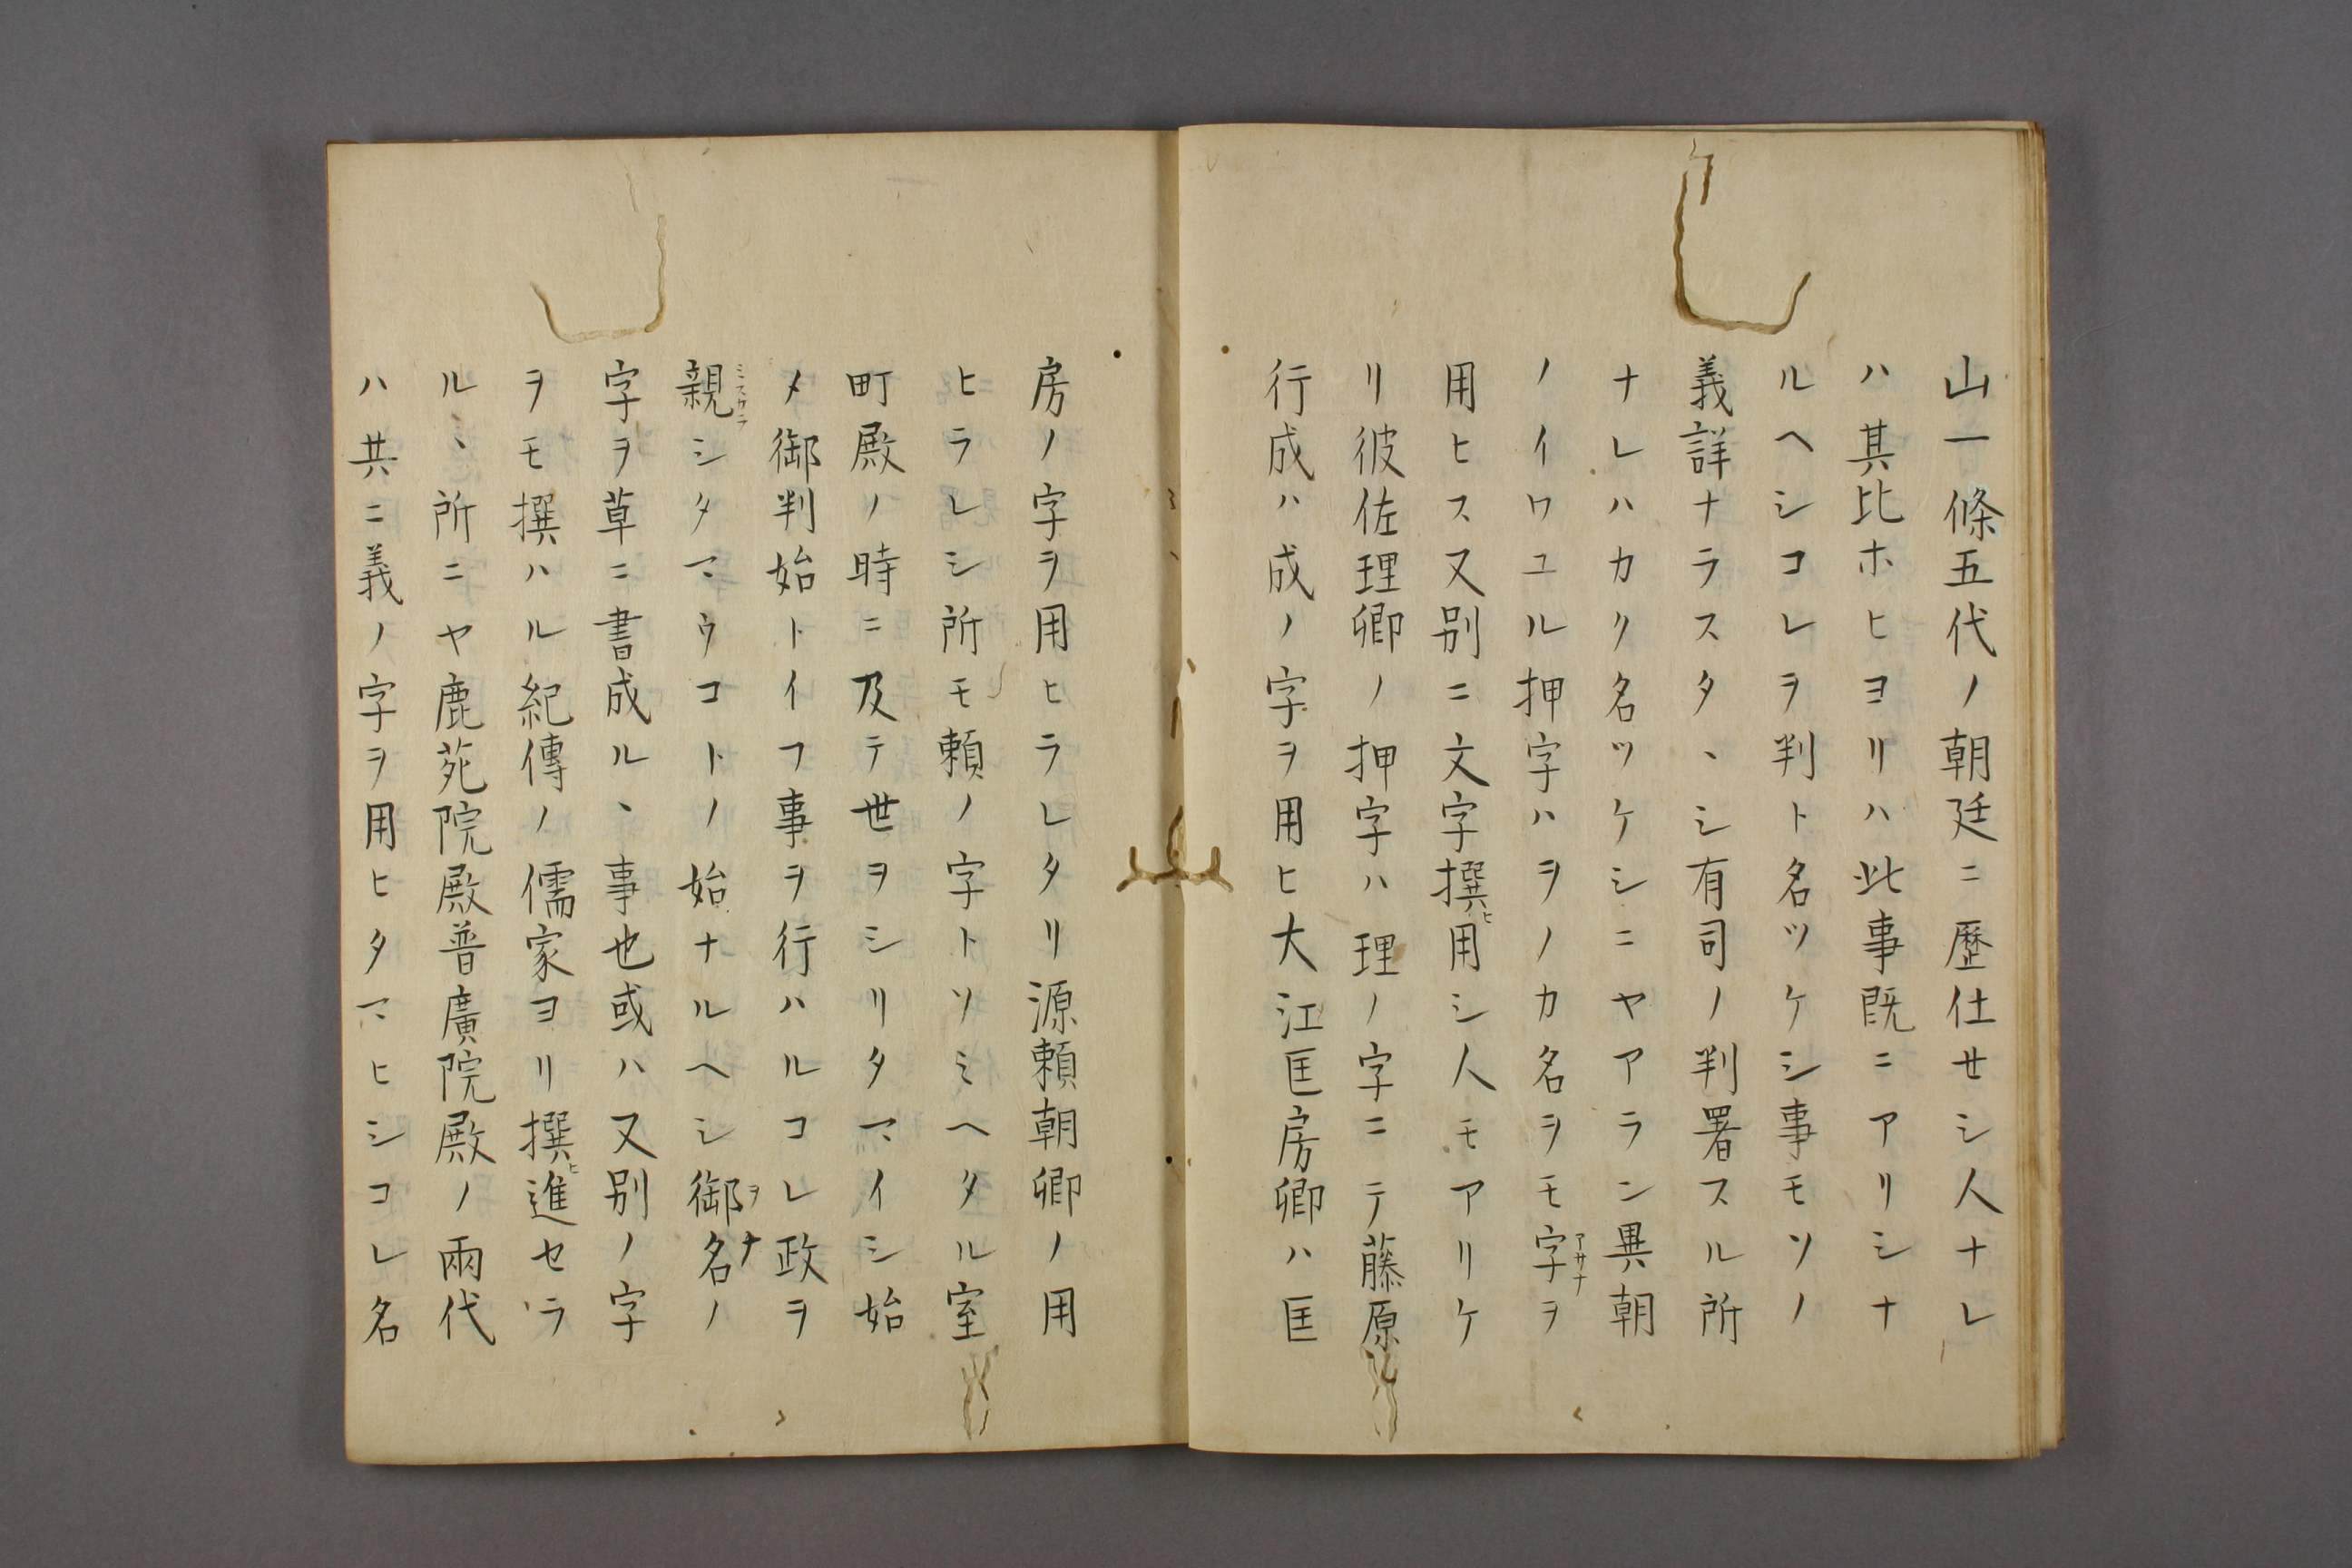 山一條五代ノ朝廷ニ歴仕セシ人ナレ
ハ其比ホヒヨリハ此事既ニアリシナ
ルヘシコレヲ判ト名ツケシ事モソノ
義詳ナラスタヽシ有司ノ判署スル所
ナレハカク名ツケシニヤアラン異朝
ノイワユル押字ハヲノカ名ヲモ字アサナヲ
用ヒス又別ニ文字撰ヒ用シ人モアリケ
リ彼佐理卿ノ押字ハ理ノ字ニテ藤原
行成ハ成ノ字ヲ用ヒ大江匡房卿ハ匡
房ノ字ヲ用ヒラレタリ源頼朝卿ノ用
ヒラレシ所モ頼ノ字トソミヘタル室
町殿ノ時ニ及テ世ヲシリタマイシ始
メ御判始トイフ事ヲ行ハルコレ政ヲ
親ミスケラシタマウコトノ始ナルヘシ御ヲ名ナノ
字ヲ草ニ書成ルヽ事也或ハ又別ノ字
ヲモ撰ハル紀傳ノ儒家ヨリ撰ヒ進セラ
ルヽ所ニヤ鹿苑院殿普廣院殿ノ兩代
ハ共ニ義ノ字ヲ用ヒタマヒシコレ名